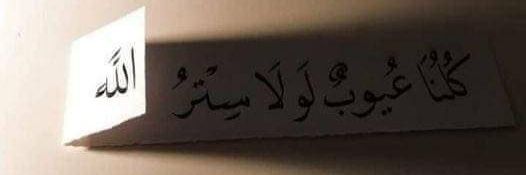 كُلُنُا عُيوبٌ لَو لَا سِتْرُ اللَّه